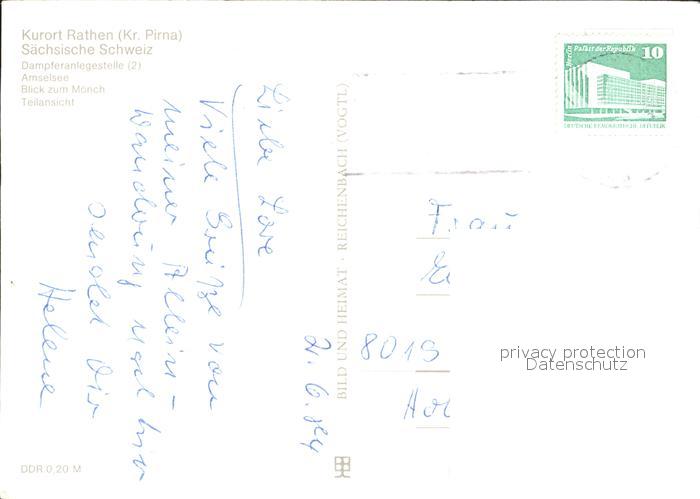 Kurort Rathen (Kr. Pirna)
Sächsische Schweiz
Dampferanlegestelle (2)
Amselsee
Blick zum Mönch
Teilansicht
Liebe Lore
Viele Grüße von
meiner Allein-
wanderung nach hier
sendet Dir
Helene
2. 6. 84
DDR 0,20 M
BILD UND HEIMAT · REICHENBACH (VOGTL)
Berlin Palast der Republik 10
DEUTSCHE DEMOKRATISCHE REPUBLIK
Frau
8019
privacy protection
Datenschutz